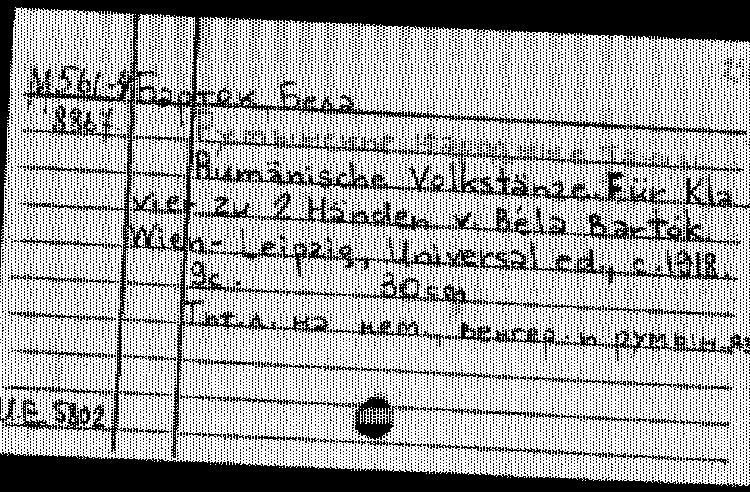 М 561-9 Барток Бела
8867
Rumänische Volkstänze. Für Kla
vier zu 2 Händen v. Béla Bartók.
Wien-Leipzig, Universal ed., c. 1918.
9с. 30cm
Тит. л. на нем., венгер. и румын. яз
U.E. 5802